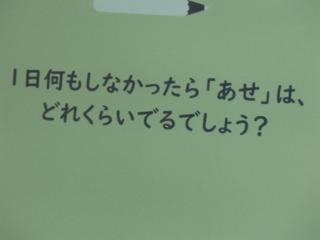 1日何もしなかったら「あせ」は、
どれくらいでるでしょう？